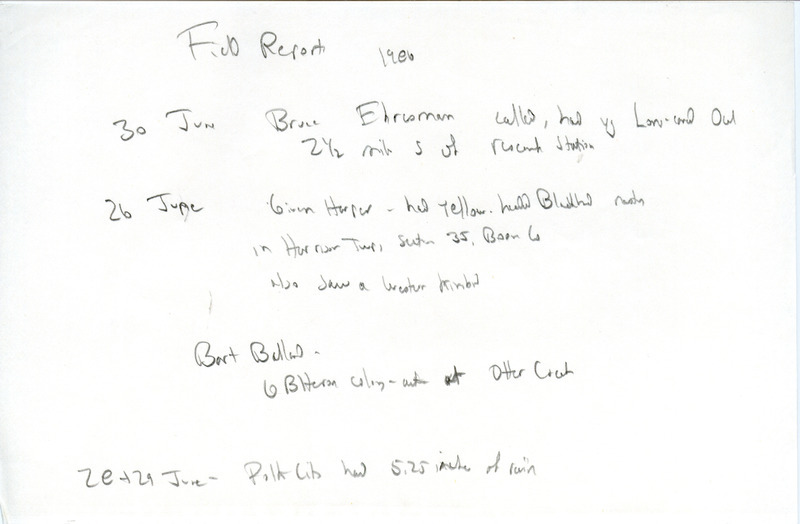 Field Report 1986
30 June Bruce Ehresman called, had yg Long-eared Owl
2 1/2 mile S of research station
26 June Given Harper - had Yellow-headed Blackbird nests
in Harrison Twp, section 35, Boon Co
Also saw a Western Kingbird
Bart Ballard -
G B Heron colony - active at Otter Creek
28+29 June - Polk City had 5.25 inches of rain